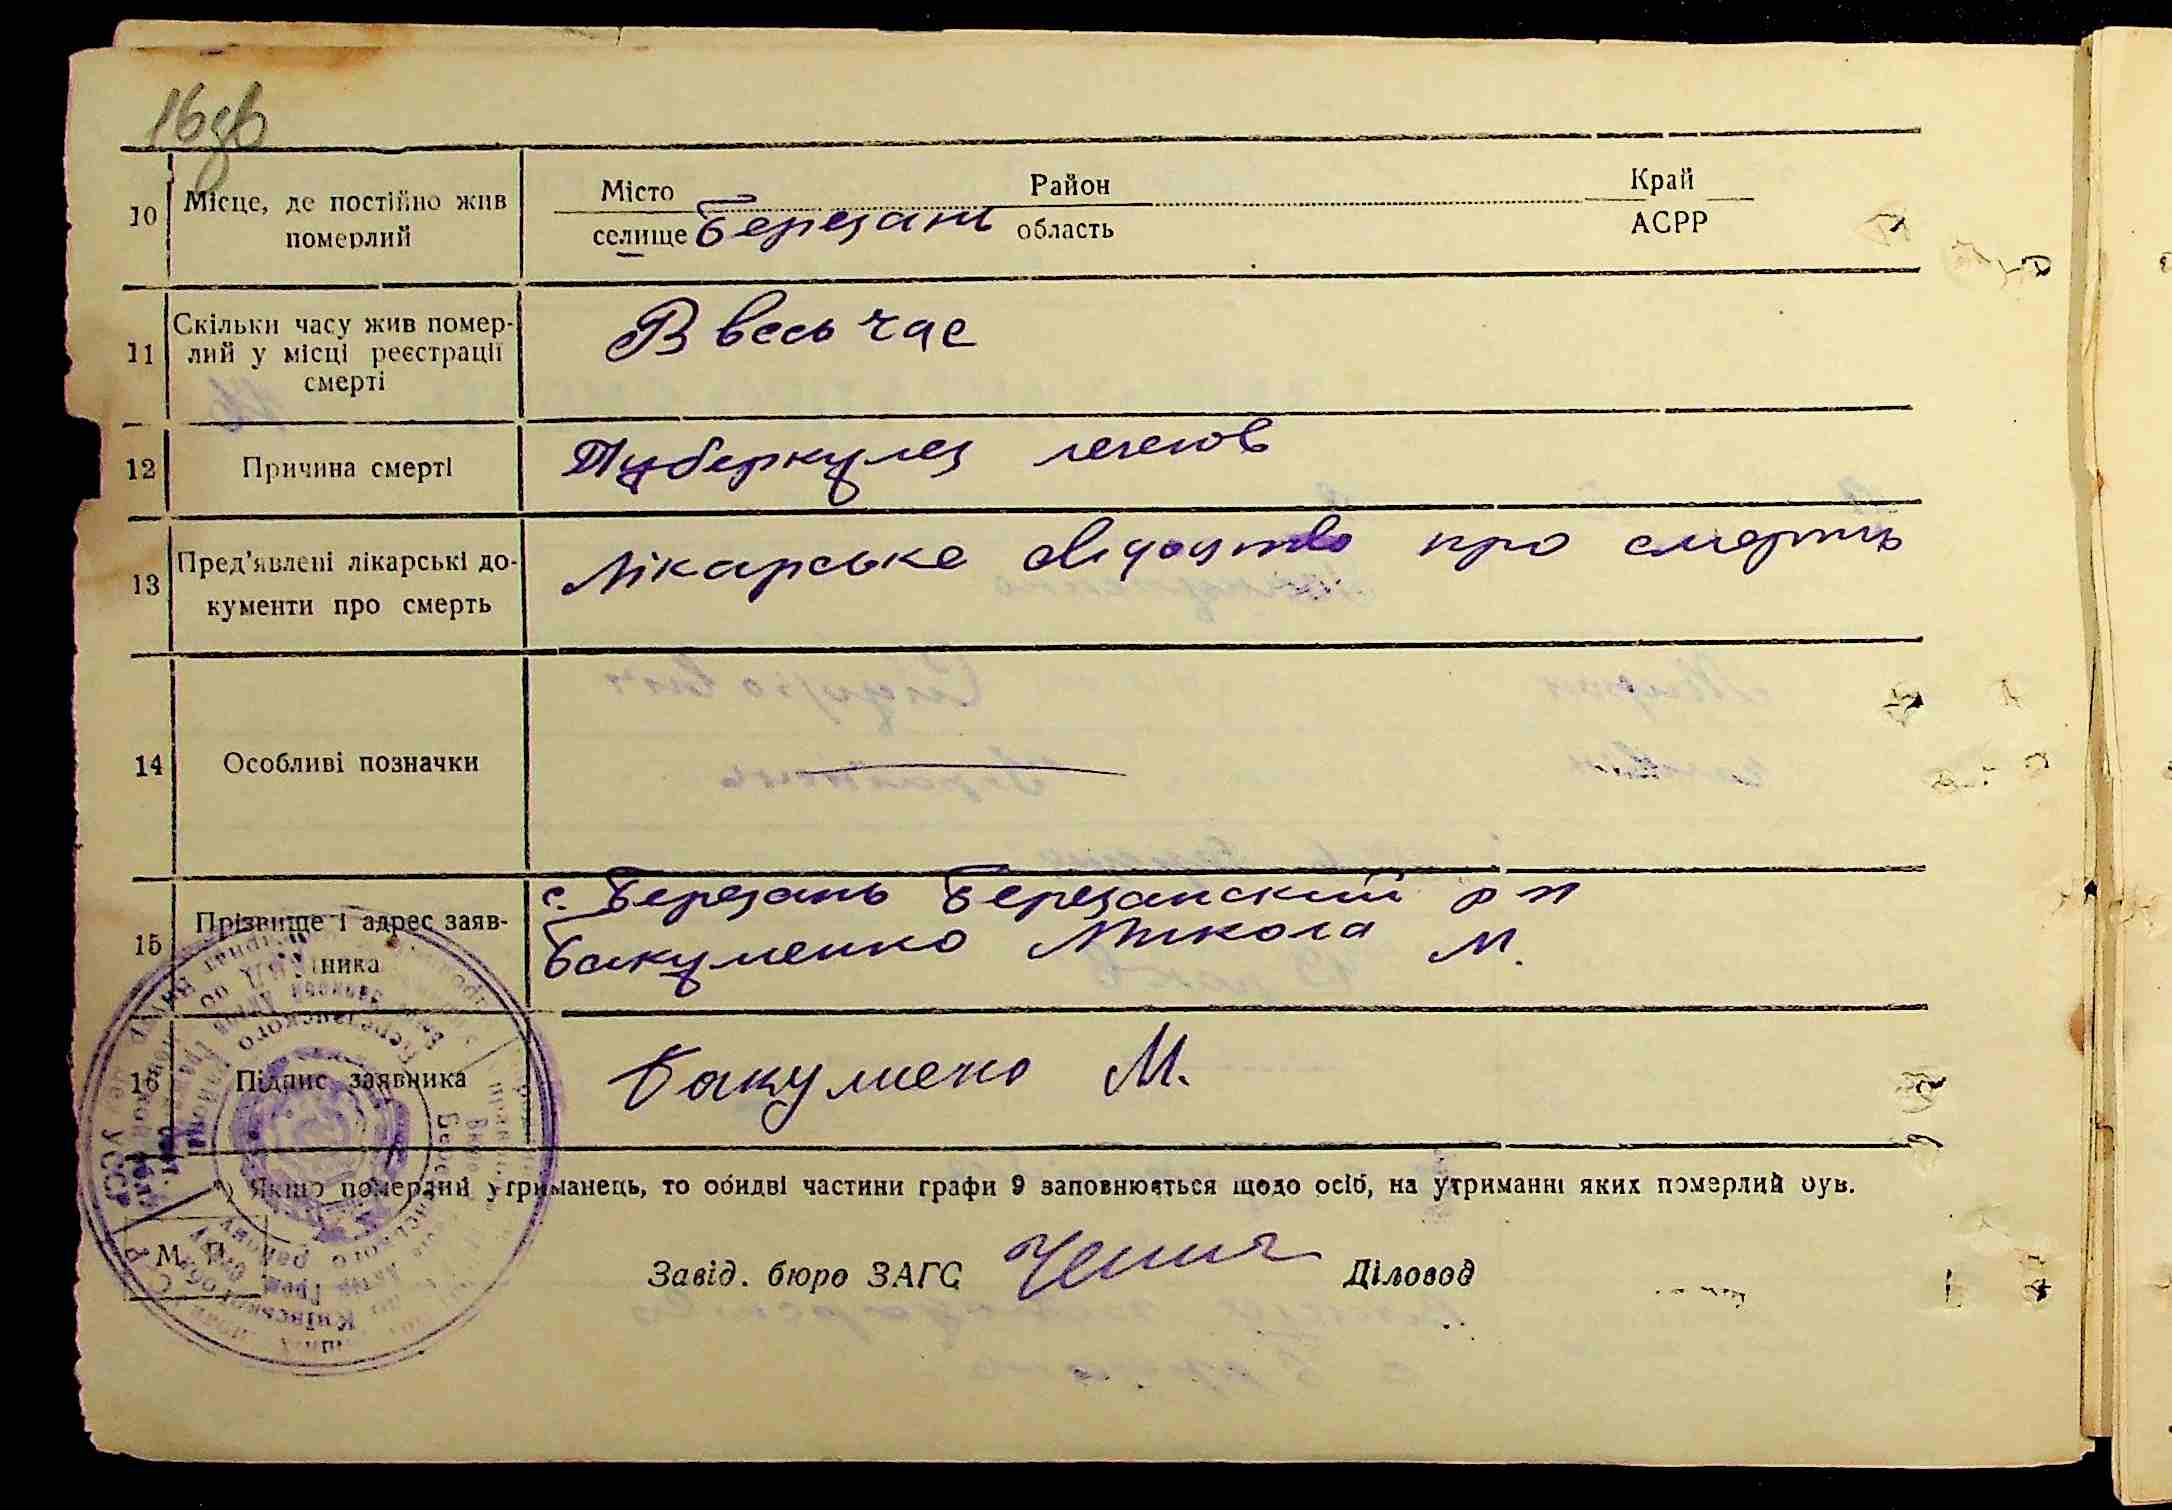 16зв
10 Місце, де постійно жив померлий
Місто Район Край
селище Березань область АСРР
11 Скільки часу жив помер-
лий у місці реєстрації
смерті
В весь час
12 Причина смерті Туберкулез легенів
13 Пред'явлені лікарські до-
кументи про смерть
Лікарське свідоцтво про смерть
14 Особливі позначки
15 Прізвище і адрес заяв-
ника
с. Березань Березанский р н
Бакуменко Микола М.
16 Підпис заявника Бакумено М.
Якщо померлий утриманець, то обидві частини графи 9 заповнюється щодо осіб, на утриманні яких померлий був.
М. П.
Завід. бюро ЗАГС Діловод